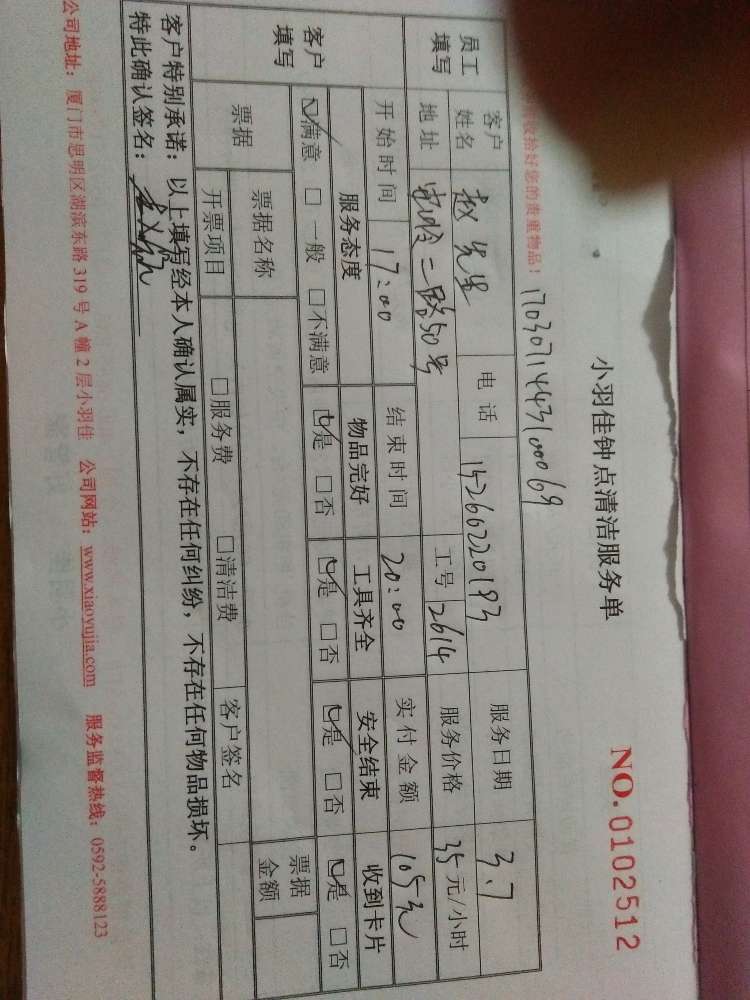 小羽佳钟点清洁服务单
NO.0102512
收拾好您的贵重物品！
170307144431000069
员工填写 客户姓名 赵先生 电话 15260220193 服务日期 3.7
地址 二路50号 工号 2614 服务价格 35元/小时
客户填写 开始时间 17:00 结束时间 20:00 实付金额 105元
服务态度 物品完好 工具齐全 安全结束 收到卡片
☑满意 □一般 □不满意 ☑是 □否 ☑是 □否 ☑是 □否 ☑是 □否
票据 票据名称 票据金额
开票项目 □服务费 □清洁费 客户签名
客户特别承诺：以上填写经本人确认属实，不存在任何纠纷，不存在任何物品损坏。
特此确认签名：
公司地址：厦门市思明区湖滨东路319号A幢2层小羽佳 公司网站：www.xiaoyujia.com 服务监督热线：0592-5888123